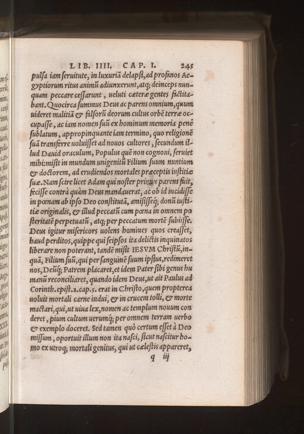 LIB. IIII. CAP. I. 245
pulsa iam seruitute, in luxuriā delapsi, ad profanos Ae-
gyptiorum ritus animū adiunxerunt, atq; deinceps nun-
quam peccare cessarunt, veluti cæteræ gentes factita-
bant. Quocirca summus Deus ac parens omnium, quum
uideret malitiā & falsorū deorum cultus orbē terræ oc-
cupasse, ac iam nomen suū ex hominum memoria penè
sublatum, appropinquante iam termino, quo religionē
suā transferre uoluisset ad nouos cultores, secundum il-
lud Dauid oraculum, Populus quē non cognoui, seruiet
mihi: misit in mundum unigenitū Filium suum nuntium
& doctorem, ad erudiendos mortales præceptis iustitiæ
suæ. Nam scire licet Adam qui noster primus parens fuit,
fecisse contrà quàm Deus mandauerat, ac ob id incidisse
in pœnam ab ipso Deo constitutā, amisisseq; donū iusti-
tiæ originalis, & illud peccatū cum pœna in omnem po
steritatē perpetuatū, atq; per peccatum mortē subiisse.
Deus igitur misericors uolens homines quos creasset,
haud perditos, quippe qui seipsos ita delictis inquinatos
liberare non poterant, tandē misit IESVM Christū, in-
quā, Filium suū, qui per sanguinē suum ipsius, redimeret
nos, Deūq; Patrem placaret, at idem Pater sibi genus hu
manū reconciliaret, quando idem Deus, ut ait Paulus ad
Corinth. epist.2.cap.5. erat in Christo, quem propterea
uoluit mortali carne indui, & in crucem tolli, & morte
mactari, qui, ut uiua lex, nomen ac templum nouum con
deret, pium cultum uerumq; per omnem terram uerbo
& exemplo doceret. Sed tamen quò certum esset à Deo
missum, oportuit illum non ita nasci, sicut nascitur ho-
mo ex utroq; mortali genitus, qui ut cælestis appareret,
q iij